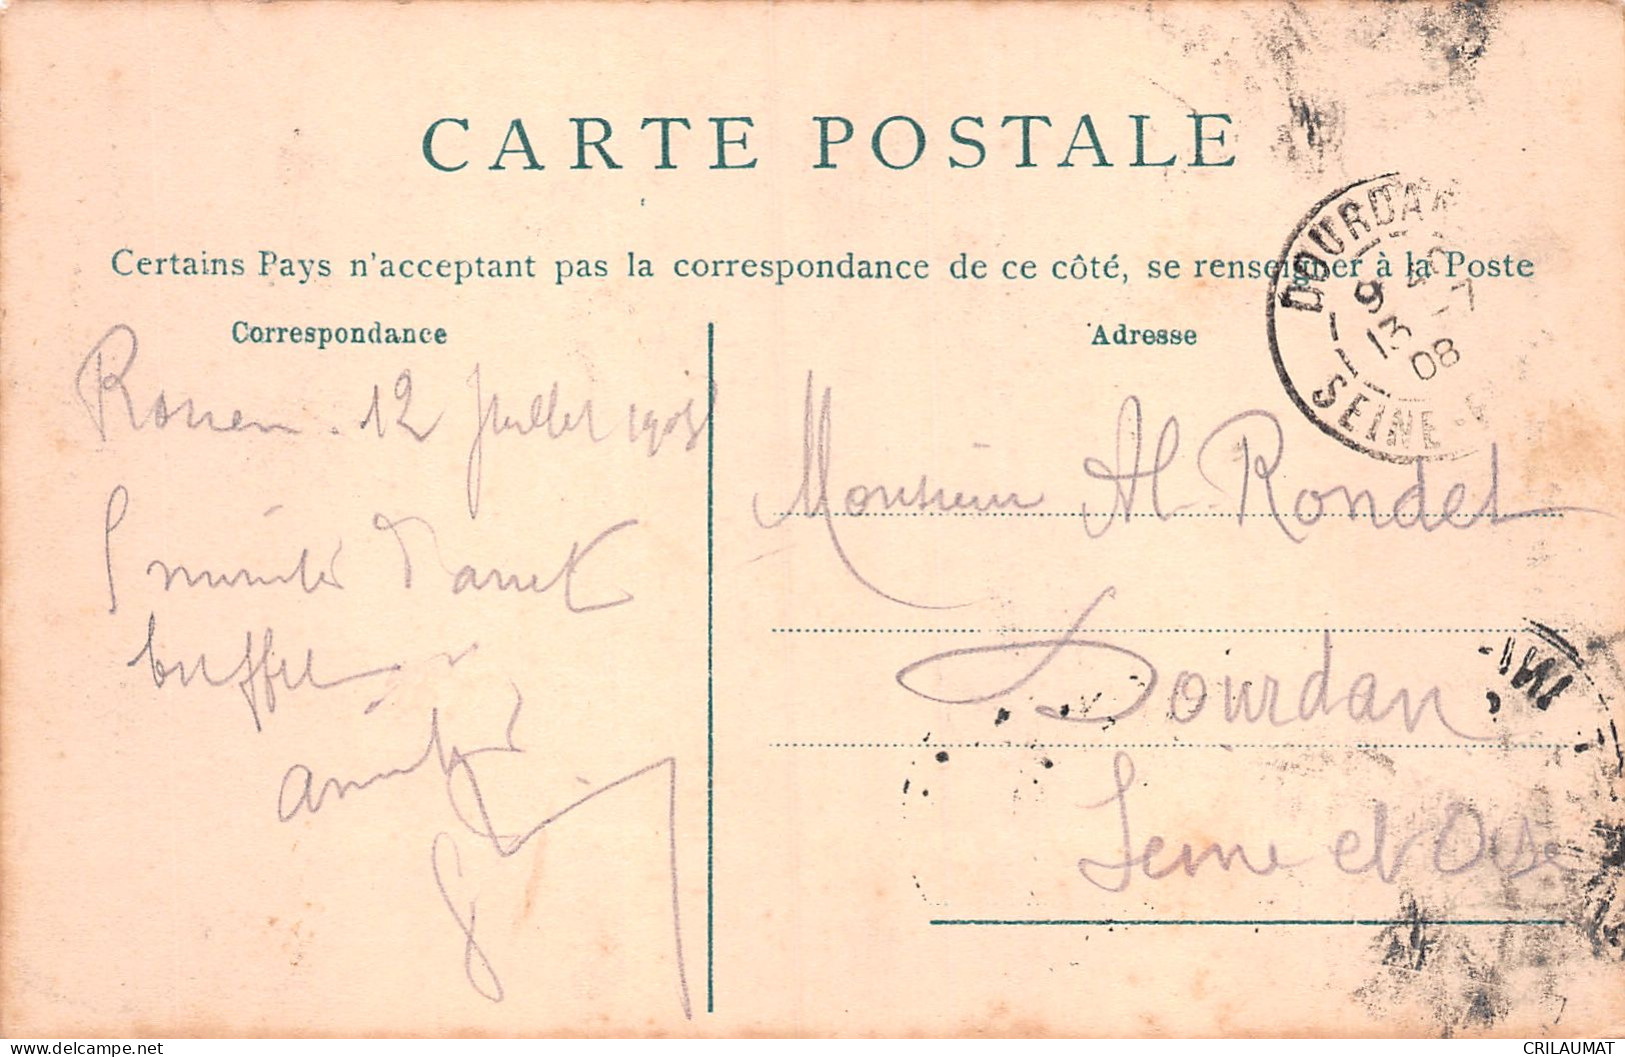 CARTE POSTALE
Certains Pays n'acceptant pas la correspondance de ce côté, se renseigner à la Poste
Correspondance
Rouen. 12 Juillet 1908
5 minutes d'arrêt
buffet
amitiés
Adresse
Monsieur Al Rondel
Dourdan
Seine et Oise
DOURDAN
9 40
13 -7
08
SEINE-
delcampe.net
CRILAUMAT